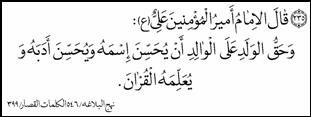 ﴿٢٣٥﴾ قَالَ الْاِمَامُ أَمِيرُ الْمُؤْمِنِينَ عَلِيٌّ (ع):
وَحَقُّ الْوَلَدِ عَلَى الْوَالِدِ أَنْ يُحَسِّنَ إِسْمَهُ وَيُحَسِّنَ أَدَبَهُ وَ
يُعَلِّمَهُ الْقُرْآنَ.
نهج البلاغه/٥٤٦ الكلمات القصار/٣٩٩